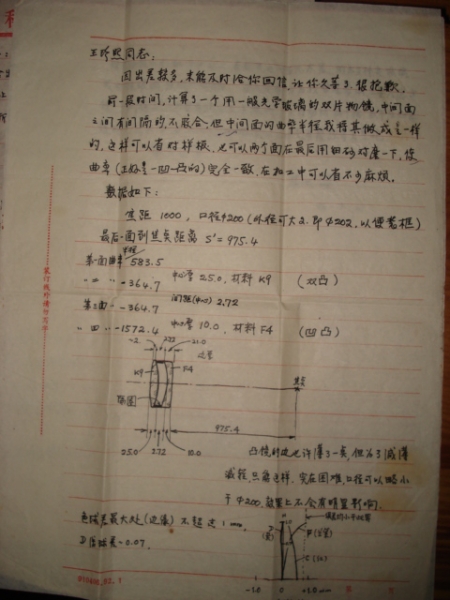 王珍熙同志:
因出差较多,未能及时给你回信,让你久等了,很抱歉。
前一段时间,计算了一个用一般光学玻璃的双片物镜,中间面
之间有间隔的,不胶合,但中间面的曲率半径我将其做成一样
的,这样可以省对样板,也可以两个面在最后用细砂对磨一下,使
曲率(正好是一凹一凸的)完全一致,在加工中可以省不少麻烦。
数据如下:
焦距1000,口径φ200(外径可大2,即φ202,以便装框)
最后一面到焦点距离 S'=975.4
第一面曲率半径 583.5
〃二〃 〃 -364.7 中心厚 25.0,材料 K9 (双凸)
第三面〃 -364.7 间距(中心) 2.72
〃四〃 〃 -1572.4 中心厚 10.0,材料 F4 (凹凸)
~2 2.72 21.0
边厚
K9 F4
焦点
略图
975.4
25.0 2.72 10.0
凸镜的边也许薄了一点,但为了减薄
减轻,只需这样,实在困难,口径可以略小
于φ200,质量上不会有明显影响。
色球差最大处(边缘)不超过1mm,
D
F
C
-1.0 0 +1.0mm